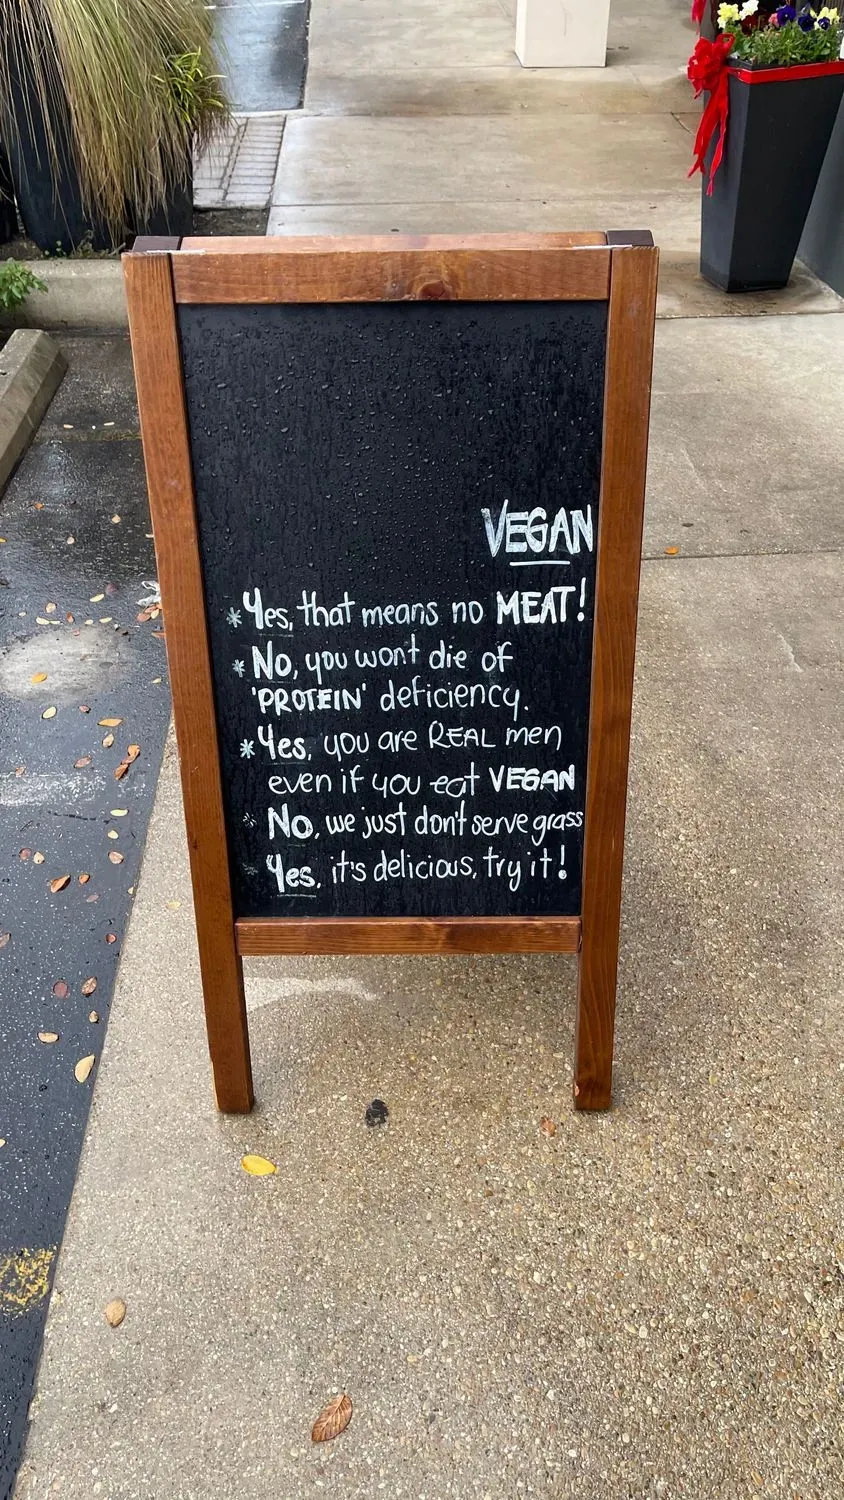 VEGAN
* Yes, that means no MEAT!
* No, you wont die of
'PROTEIN' deficiency.
* Yes, you are REAL men
even if you eat VEGAN
* No, we just don't serve grass
* Yes, it's delicious, try it!